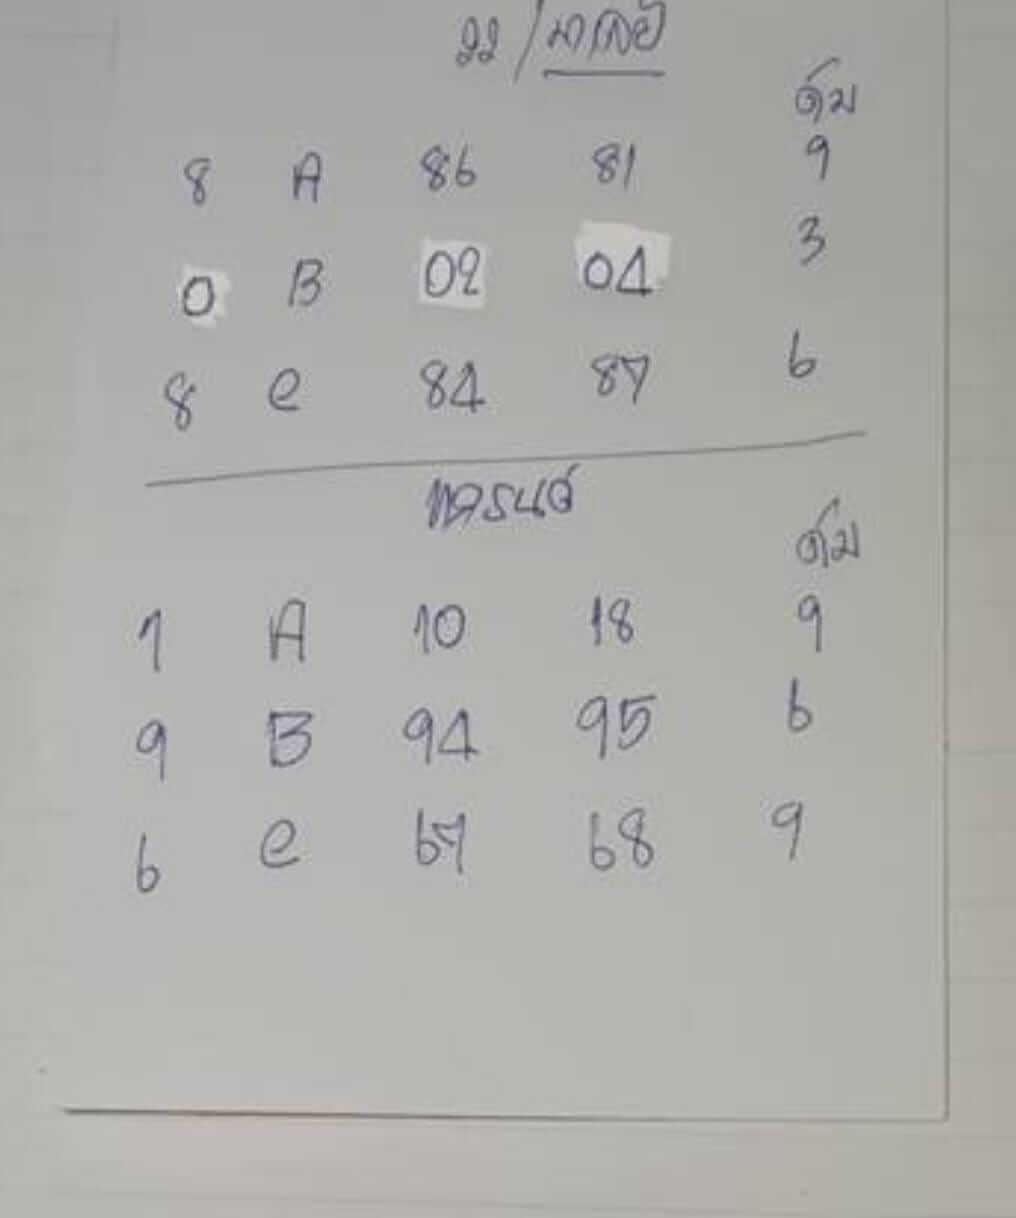 22 / มาเลย์
ดับ
8 A 86 81 9
0 B 02 04 3
8 C 84 87 6
แกรนด์
ดับ
1 A 10 18 9
9 B 94 95 6
6 C 67 68 9